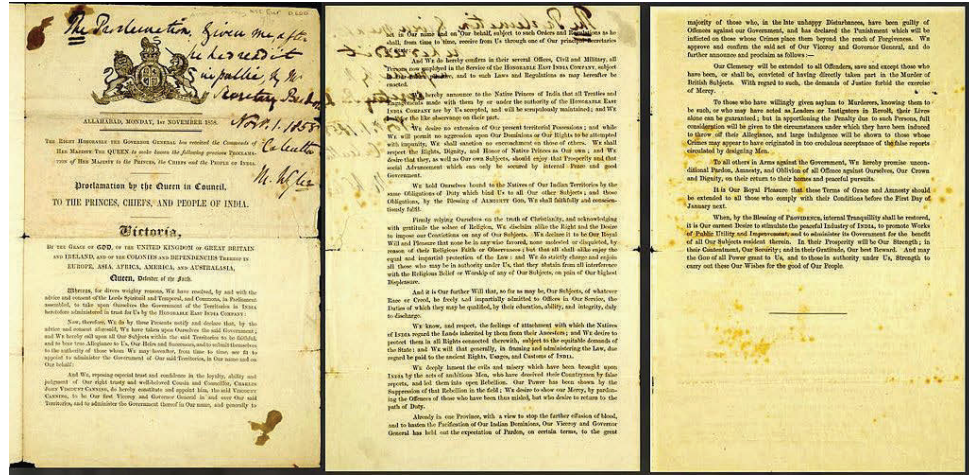 The Proclamation, Given me after
he had read it
in public, by Mr
Secretary
Nov. 1. 1858
Calcutta
ALLAHABAD, MONDAY, 1st NOVEMBER 1858.
THE RIGHT HONORABLE THE GOVERNOR GENERAL has received the Commands of
HER MAJESTY THE QUEEN to make known the following gracious PROCLAMA-
TION of HER MAJESTY to the PRINCES, the CHIEFS and the PEOPLE OF INDIA.
Proclamation by the Queen in Council,
TO THE PRINCES, CHIEFS, AND PEOPLE OF INDIA.
Victoria,
BY THE GRACE OF GOD, OF THE UNITED KINGDOM OF GREAT BRITAIN
AND IRELAND, AND OF THE COLONIES AND DEPENDENCIES THEREOF IN
EUROPE, ASIA, AFRICA, AMERICA, AND AUSTRALASIA,
Queen, Defender of the Faith.
WHEREAS, for divers weighty reasons, We have resolved, by and with the
advice and consent of the Lords Spiritual and Temporal, and Commons, in Parliament
assembled, to take upon Ourselves the Government of the Territories in INDIA
heretofore administered in trust for Us by the HONORABLE EAST INDIA COMPANY:
Now, therefore, We do by these Presents notify and declare that, by the
advice and consent aforesaid, We have taken upon Ourselves the said Government;
and We hereby call upon all Our Subjects within the said Territories to be faithful,
and to bear true Allegiance to Us, Our Heirs and Successors, and to submit themselves
to the authority of those whom We may hereafter, from time to time, see fit to
appoint to administer the Government of Our said Territories, in Our name and on
Our behalf.
And We, reposing especial trust and confidence in the loyalty, ability and
judgment of Our right trusty and well-beloved Cousin and Councillor, CHARLES
JOHN VISCOUNT CANNING, do hereby constitute and appoint him, the said VISCOUNT
CANNING, to be Our first Viceroy and Governor General in and over Our said
Territories, and to administer the Government thereof in Our name, and generally to
act in Our name and on Our behalf, subject to such Orders and Regulations as he
shall, from time to time, receive from Us through one of Our principal Secretaries
And We do hereby confirm in their several Offices, Civil and Military, all
now employed in the Service of the HONORABLE EAST INDIA COMPANY, subject
and to such Laws and Regulations as may hereafter be
enacted.
hereby announce to the Native Princes of India that all Treaties and
Engagements made with them by or under the authority of the HONORABLE EAST
INDIA COMPANY are by Us accepted, and will be scrupulously maintained; and We
the like observance on their part.
We desire no extension of Our present territorial Possessions; and while
We will permit no aggression upon Our Dominions or Our Rights to be attempted
with impunity, We shall sanction no encroachment on those of others. We shall
respect the Rights, Dignity, and Honor of Native Princes as Our own; and We
desire that they, as well as Our own Subjects, should enjoy that Prosperity and that
social Advancement which can only be secured by internal Peace and good
Government.
We hold Ourselves bound to the Natives of Our Indian Territories by the
same Obligations of Duty which bind Us to all Our other Subjects; and those
Obligations, by the Blessing of ALMIGHTY GOD, We shall faithfully and conscien-
tiously fulfil.
Firmly relying Ourselves on the truth of Christianity, and acknowledging
with gratitude the solace of Religion, We disclaim alike the Right and the Desire
to impose our Convictions on any of Our Subjects. We declare it to be Our Royal
Will and Pleasure that none be in any wise favored, none molested or disquieted, by
reason of their Religious Faith or Observances; but that all shall alike enjoy the
equal and impartial protection of the Law: and We do strictly charge and enjoin
all those who may be in authority under Us, that they abstain from all interference
with the Religious Belief or Worship of any of Our Subjects, on pain of Our highest
Displeasure.
And it is Our further Will that, so far as may be, Our Subjects, of whatever
Race or Creed, be freely and impartially admitted to Offices in Our Service, the
Duties of which they may be qualified, by their education, ability, and integrity, duly
to discharge.
We know, and respect, the feelings of attachment with which the Natives
of INDIA regard the Lands inherited by them from their Ancestors; and We desire to
protect them in all Rights connected therewith, subject to the equitable demands of
the State; and We will that generally, in framing and administering the Law, due
regard be paid to the ancient Rights, Usages, and Customs of INDIA.
We deeply lament the evils and misery which have been brought upon
INDIA by the acts of ambitious Men, who have deceived their Countrymen by false
reports, and led them into open Rebellion. Our Power has been shown by the
Suppression of that Rebellion in the field; We desire to show our Mercy, by pardon-
ing the Offences of those who have been thus misled, but who desire to return to the
path of Duty.
Already in one Province, with a view to stop the further effusion of blood,
and to hasten the Pacification of Our Indian Dominions, Our Viceroy and Governor
General has held out the expectation of Pardon, on certain terms, to the great
majority of those who, in the late unhappy Disturbances, have been guilty of
Offences against our Government, and has declared the Punishment which will be
inflicted on those whose Crimes place them beyond the reach of Forgiveness. We
approve and confirm the said act of Our Viceroy and Governor General, and do
further announce and proclaim as follows:—
Our Clemency will be extended to all Offenders, save and except those
who have been, or shall be, convicted of having directly taken part in the Murder of
British Subjects. With regard to such, the demands of Justice forbid the exercise
of Mercy.
To those who have willingly given asylum to Murderers, knowing them to
be such, or who may have acted as Leaders or Instigators in Revolt, their Lives
alone can be guaranteed; but in apportioning the Penalty due to such Persons, full
consideration will be given to the circumstances under which they have been induced
to throw off their Allegiance, and large indulgence will be shown to those whose
Crimes may appear to have originated in too credulous acceptance of the false reports
circulated by designing Men.
To all others in Arms against the Government, We hereby promise uncon-
ditional Pardon, Amnesty, and Oblivion of all Offence against Ourselves, Our Crown
and Dignity, on their return to their homes and peaceful pursuits.
It is Our Royal Pleasure that these Terms of Grace and Amnesty should
be extended to all those who comply with their Conditions before the First Day of
January next.
When, by the Blessing of PROVIDENCE, internal Tranquillity shall be restored,
it is Our Earnest Desire to stimulate the peaceful Industry of INDIA, to promote Works
of Public Utility and Improvement, and to administer its Government for the benefit
of all Our Subjects resident therein. In their Prosperity will be Our Strength; in
their Contentment, Our Security; and in their Gratitude, Our best Reward. And may
the God of all Power grant to Us, and to those in authority under Us, Strength to
carry out these Our Wishes for the good of Our People.